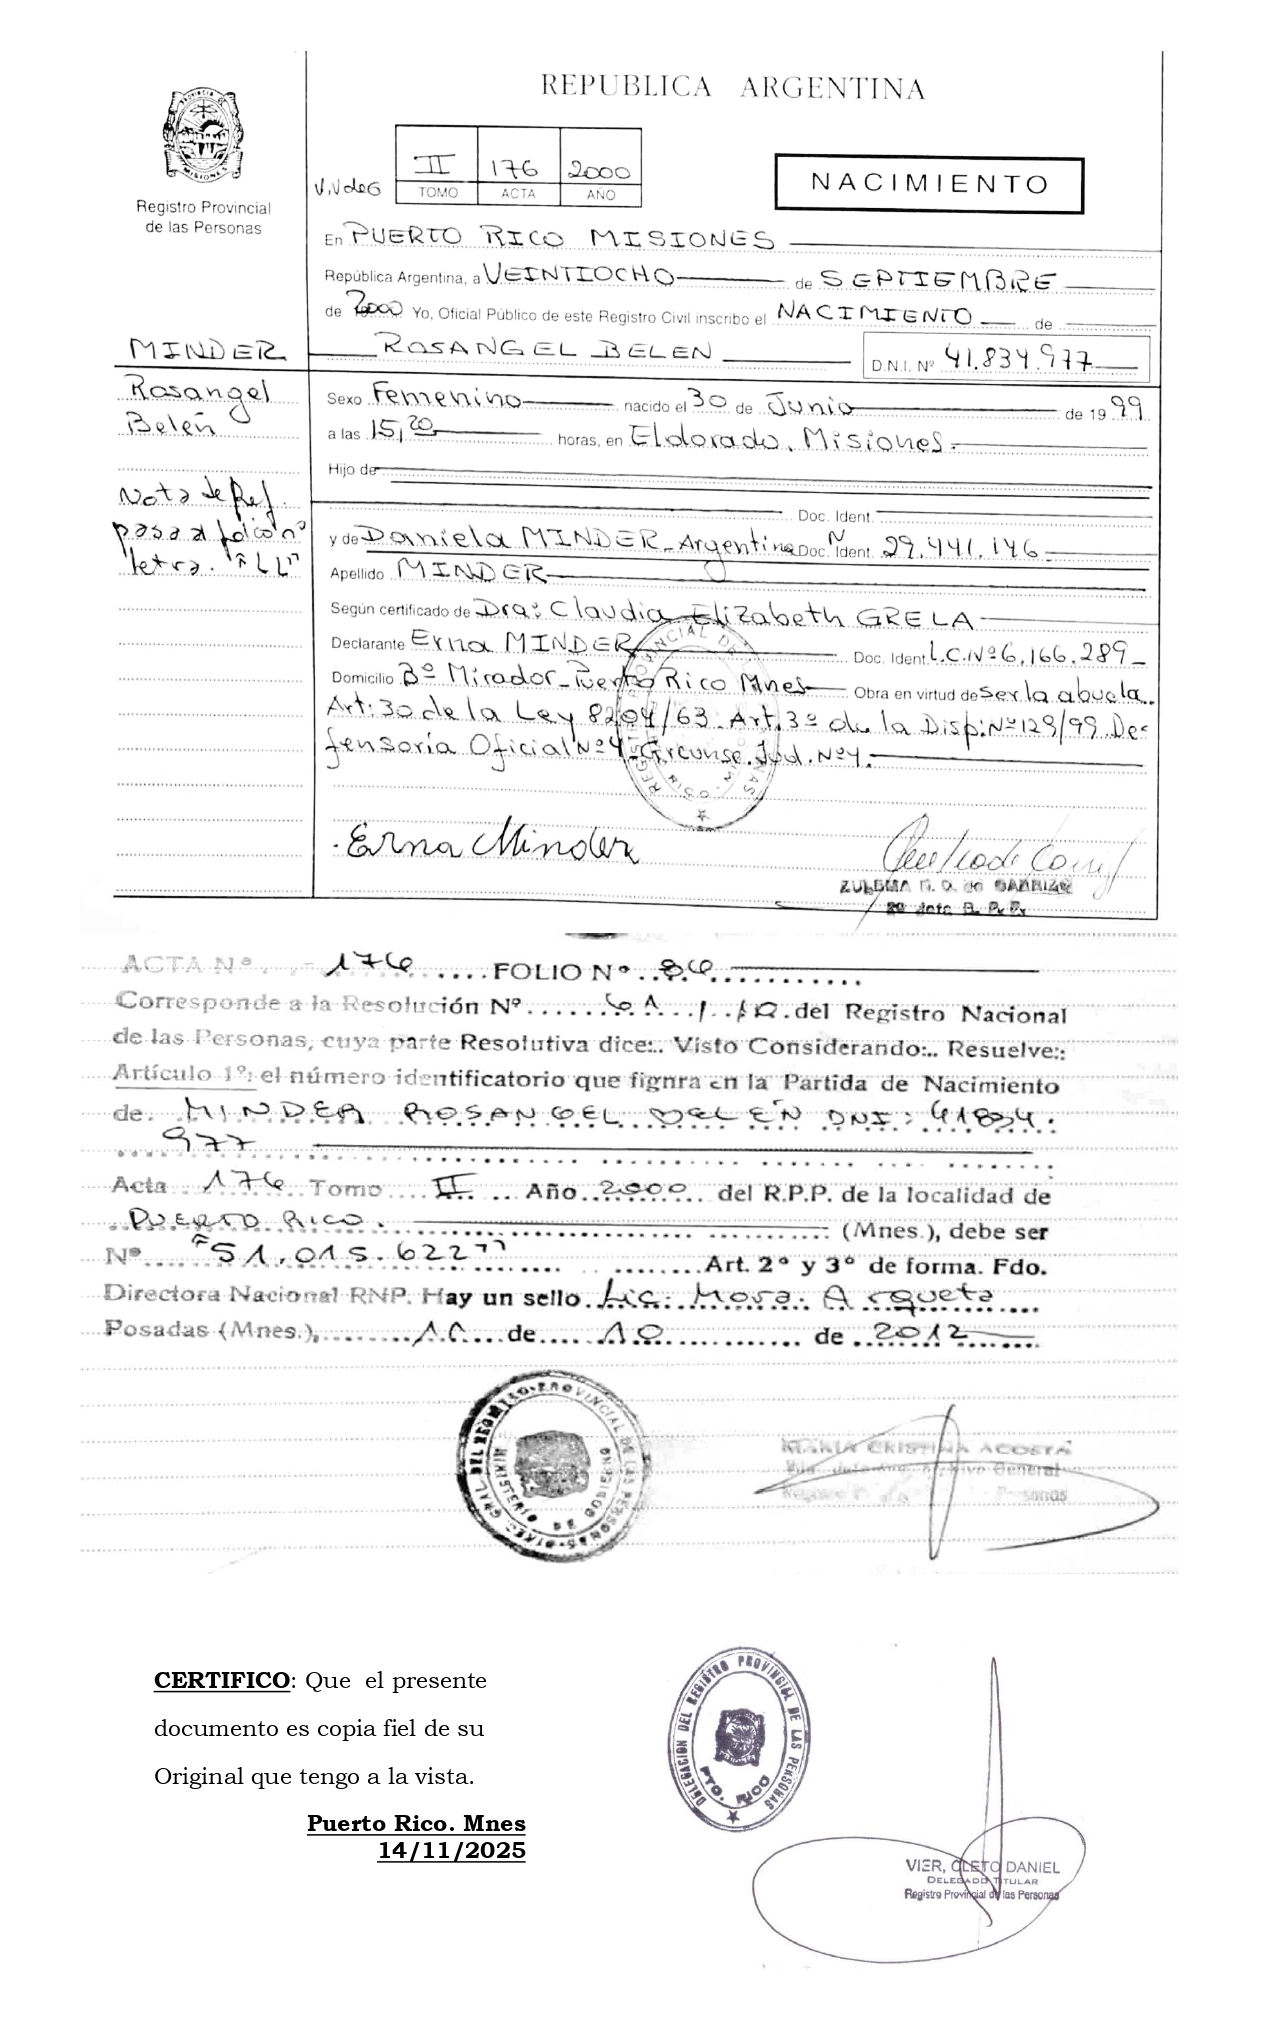 REPUBLICA ARGENTINA
Registro Provincial
de las Personas
V.V de G
II 176 2000
TOMO ACTA AÑO
NACIMIENTO
En PUERTO RICO MISIONES
República Argentina, a VEINTIOCHO de SEPTIEMBRE
de 2000 Yo, Oficial Público de este Registro Civil inscribo el NACIMIENTO de
ROSANGEL BELEN D.N.I. Nº 41.834.977
MINDER
Rosangel
Belén
Nota de Ref.
pasa al folio nº
letra. "LL"
Sexo Femenino nacido el 30 de Junio de 1999
a las 15,20 horas, en Eldorado, Misiones.
Hijo de
Doc. Ident.
y de Daniela MINDER - Argentina Doc. Ident. Nº 29.441.146
Apellido MINDER
Según certificado de Dra: Claudia Elizabeth GRELA
Declarante Erna MINDER Doc. Ident. L.C.Nº 6,166.289
Domicilio Bº Mirador - Puerto Rico Mnes Obra en virtud de ser la abuela.
Art: 30 de la Ley 8204/63 Art. 3º de la Disp: Nº 129/99 De=
fensoría Oficial Nº 4 - Circunsc. Jud. Nº 4.
Erna Minder
ACTA Nº. 176 FOLIO Nº 86
Corresponde a la Resolución Nº del Registro Nacional
de las Personas, cuya parte Resolutiva dice:.. Visto Considerando:.. Resuelve:
Artículo 1º: el número identificatorio que fignra en la Partida de Nacimiento
de. MINDER ROSANGEL BELEÑ DNI: 41834.
977
Acta 176 Tomo II Año 2000 del R.P.P. de la localidad de
PUERTO RICO. (Mnes.), debe ser
Nº "51.015.622" Art. 2º y 3º de forma. Fdo.
Directora Nacional RNP. Hay un sello Lic. Mora Arqueta
Posadas (Mnes.), de 10 de 2012
DIREC. GRAL. DEL REGISTRO PROVINCIAL DE LAS PERSONAS
MINISTERIO DE GOBIERNO
MARIA CRISTINA ACOSTA
CERTIFICO: Que el presente
documento es copia fiel de su
Original que tengo a la vista.
Puerto Rico. Mnes
14/11/2025
DELEGACION DEL REGISTRO PROVINCIAL DE LAS PERSONAS
PTO. RICO
VIER, CLETO DANIEL
DELEGADO TITULAR
Registro Provincial de las Personas